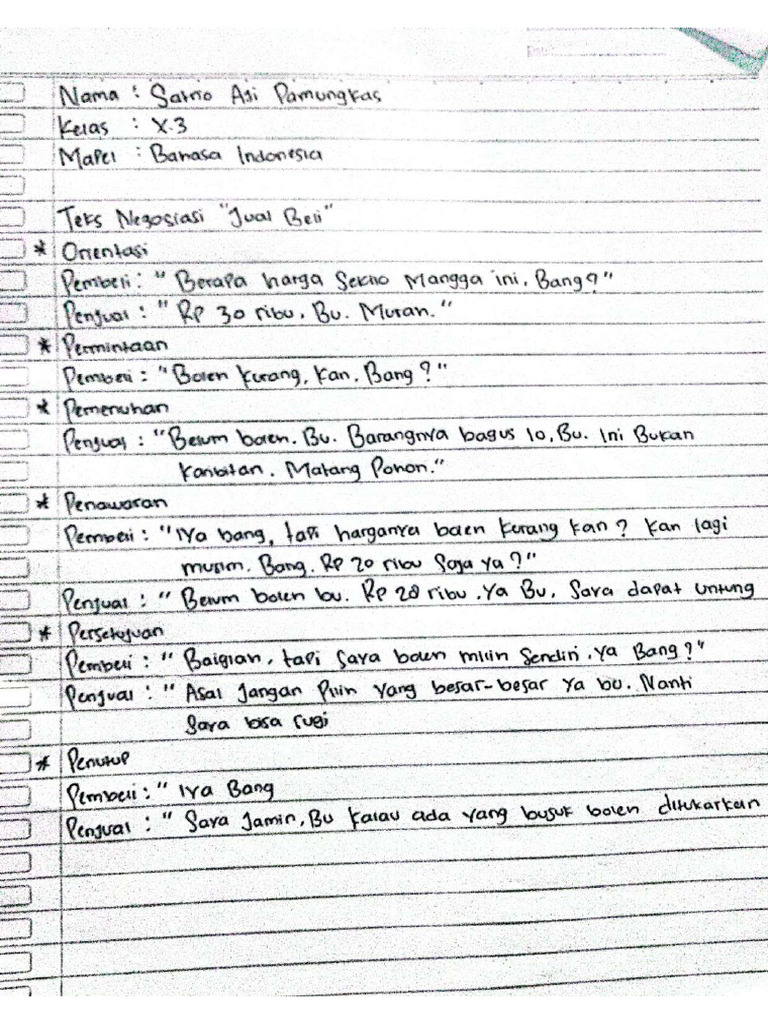 Nama : Satrio Aji Pamungkas
Kelas : X.3
Mapel : Bahasa Indonesia
Teks Negosiasi "Jual Beli"
* Orientasi
Pembeli : "Berapa harga Sekilo Mangga ini, Bang?"
Penjual : "Rp 30 ribu, Bu. Murah."
* Permintaan
Pembeli : "Boleh kurang, kan, Bang?"
* Pemenuhan
Penjual : "Belum boleh, Bu. Barangnya bagus lo, Bu. Ini Bukan
Karbitan. Matang Pohon."
* Penawaran
Pembeli : "Iya bang, tapi harganya boleh kurang kan? Kan lagi
musim. Bang. Rp 20 ribu Saja ya?"
Penjual : "Belum boleh bu. Rp 28 ribu, Ya Bu, Saya dapat untung
* Persetujuan
Pembeli : "Baiglah, tapi Saya boleh milih Sendiri, Ya Bang?"
Penjual : "Asal Jangan Pilih Yang besar-besar Ya bu. Nanti
Saya bisa rugi
* Penutup
Pembeli : "Iya Bang
Penjual : "Saya Jamin, Bu Kalau ada yang busuk boleh ditukarkan